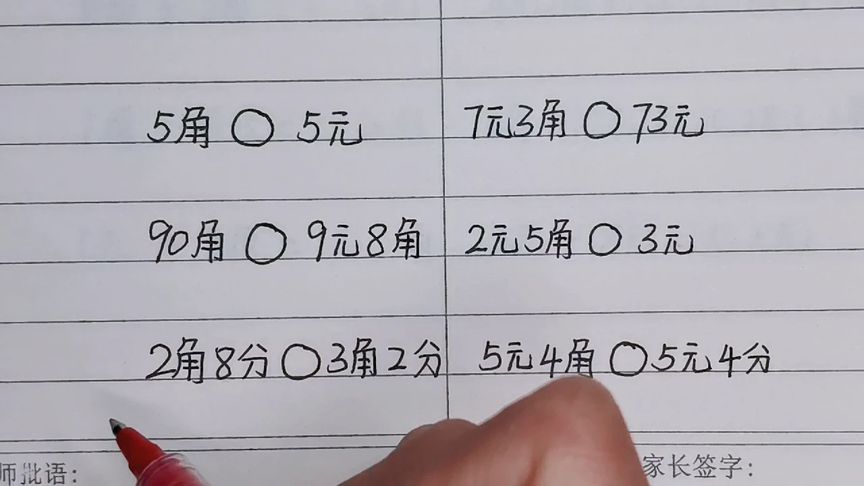 5角○ 5元 7元3角○73元
90角○ 9元8角 2元5角○ 3元
2角8分○3角2分 5元4角○5元4分
师批语： 家长签字：